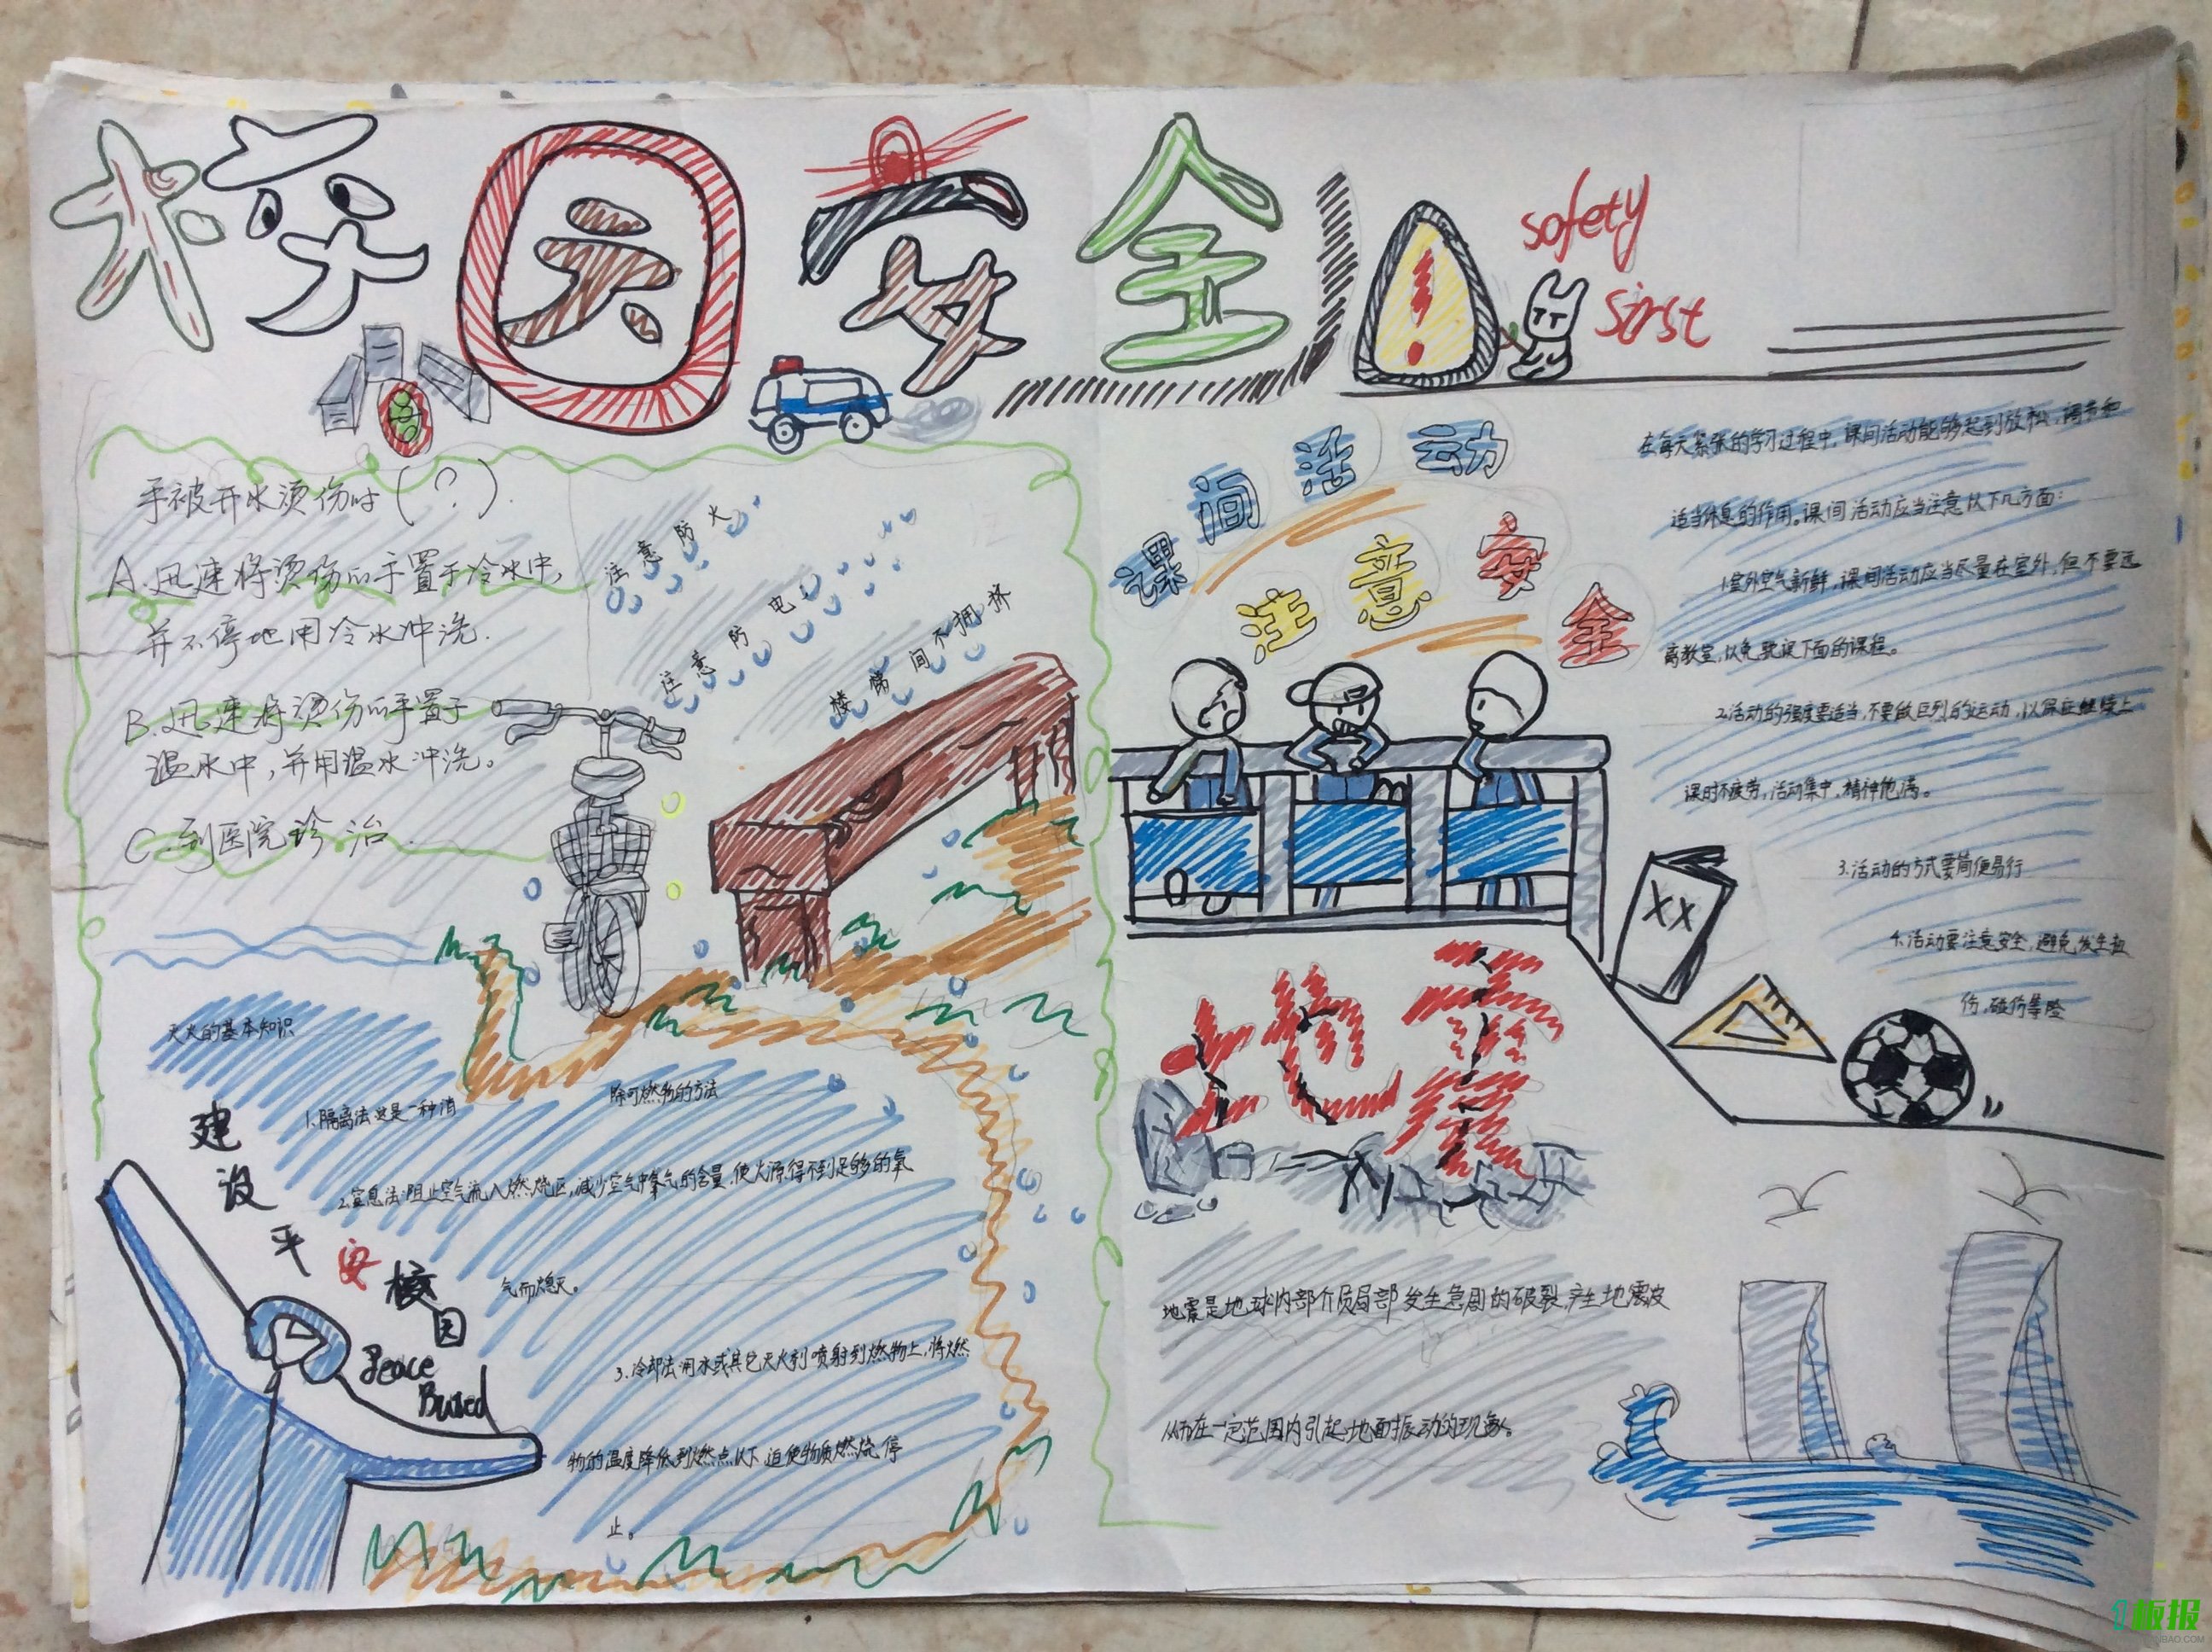 校园安全
safety
sirst
手被开水烫伤时(?).
A.迅速将烫伤的手置于冷水中,
并不停地用冷水冲洗.
B.迅速将烫伤的手置于
温水中,并用温水冲洗。
C.到医院诊治.
注意防火
注意防电
楼梯间不拥挤
灭火的基本知识
1.隔离法这是一种消
除可燃物的方法
2.窒息法:阻止空气流入燃烧区,减少空气中氧气的含量,使火源得不到足够的氧
气而熄灭。
3.冷却法用水或其它灭火剂喷射到燃物上,将燃
物的温度降低到燃点以下迫使物质燃烧停
止。
建设平安校园
Peace
课间活动
注意安全
在每天紧张的学习过程中,课间活动能够起到放松,调节和
适当休息的作用。课间活动应当注意以下几方面:
1.室外空气新鲜,课间活动应当尽量在室外,但不要远
离教室,以免耽误下面的课程。
2.活动的强度要适当,不要做巨烈的运动,以保证继续上
课时不疲劳,活动集中,精神饱满。
3.活动的方式要简便易行
4.活动要注意安全,避免发生扭
伤,碰伤等险
XX
地震
地震是地球内部介质局部发生急剧的破裂,产生地震波
从而在一定范围内引起地面振动的现象。
板报